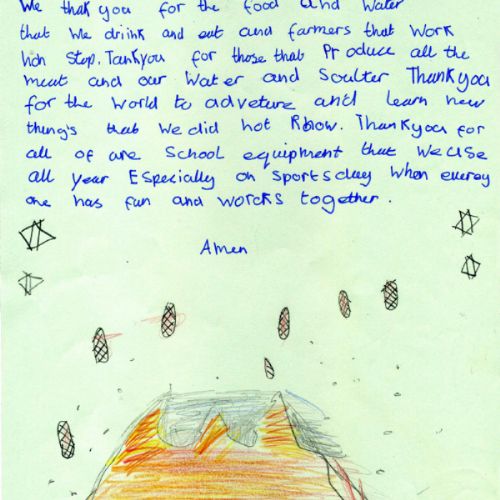 We thak you for the food and water
that we driink and eat and farmers that work
non stop. Tankyou for those that Produce all the
meat and our water and Soulter Thankyou
for the world to adveture and learn new
thing's that we did not Know. Thankyou for
all of are School equipment that we use
all year Especially on sportsday when every
one has fun and worcks together.
Amen